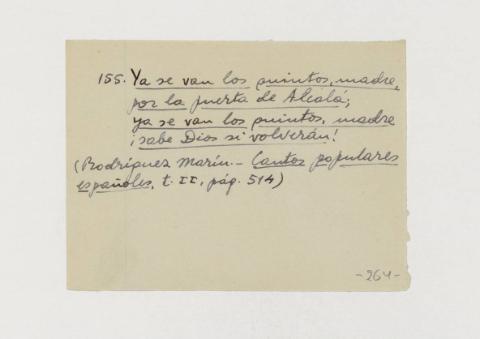 155. Ya se van los quintos, madre,
por la puerta de Alcalá;
ya se van los quintos, madre
¡sabe Dios si volverán!
(Rodríguez Marín.- Cantos populares
españoles, t. II, pág. 514)
-264-